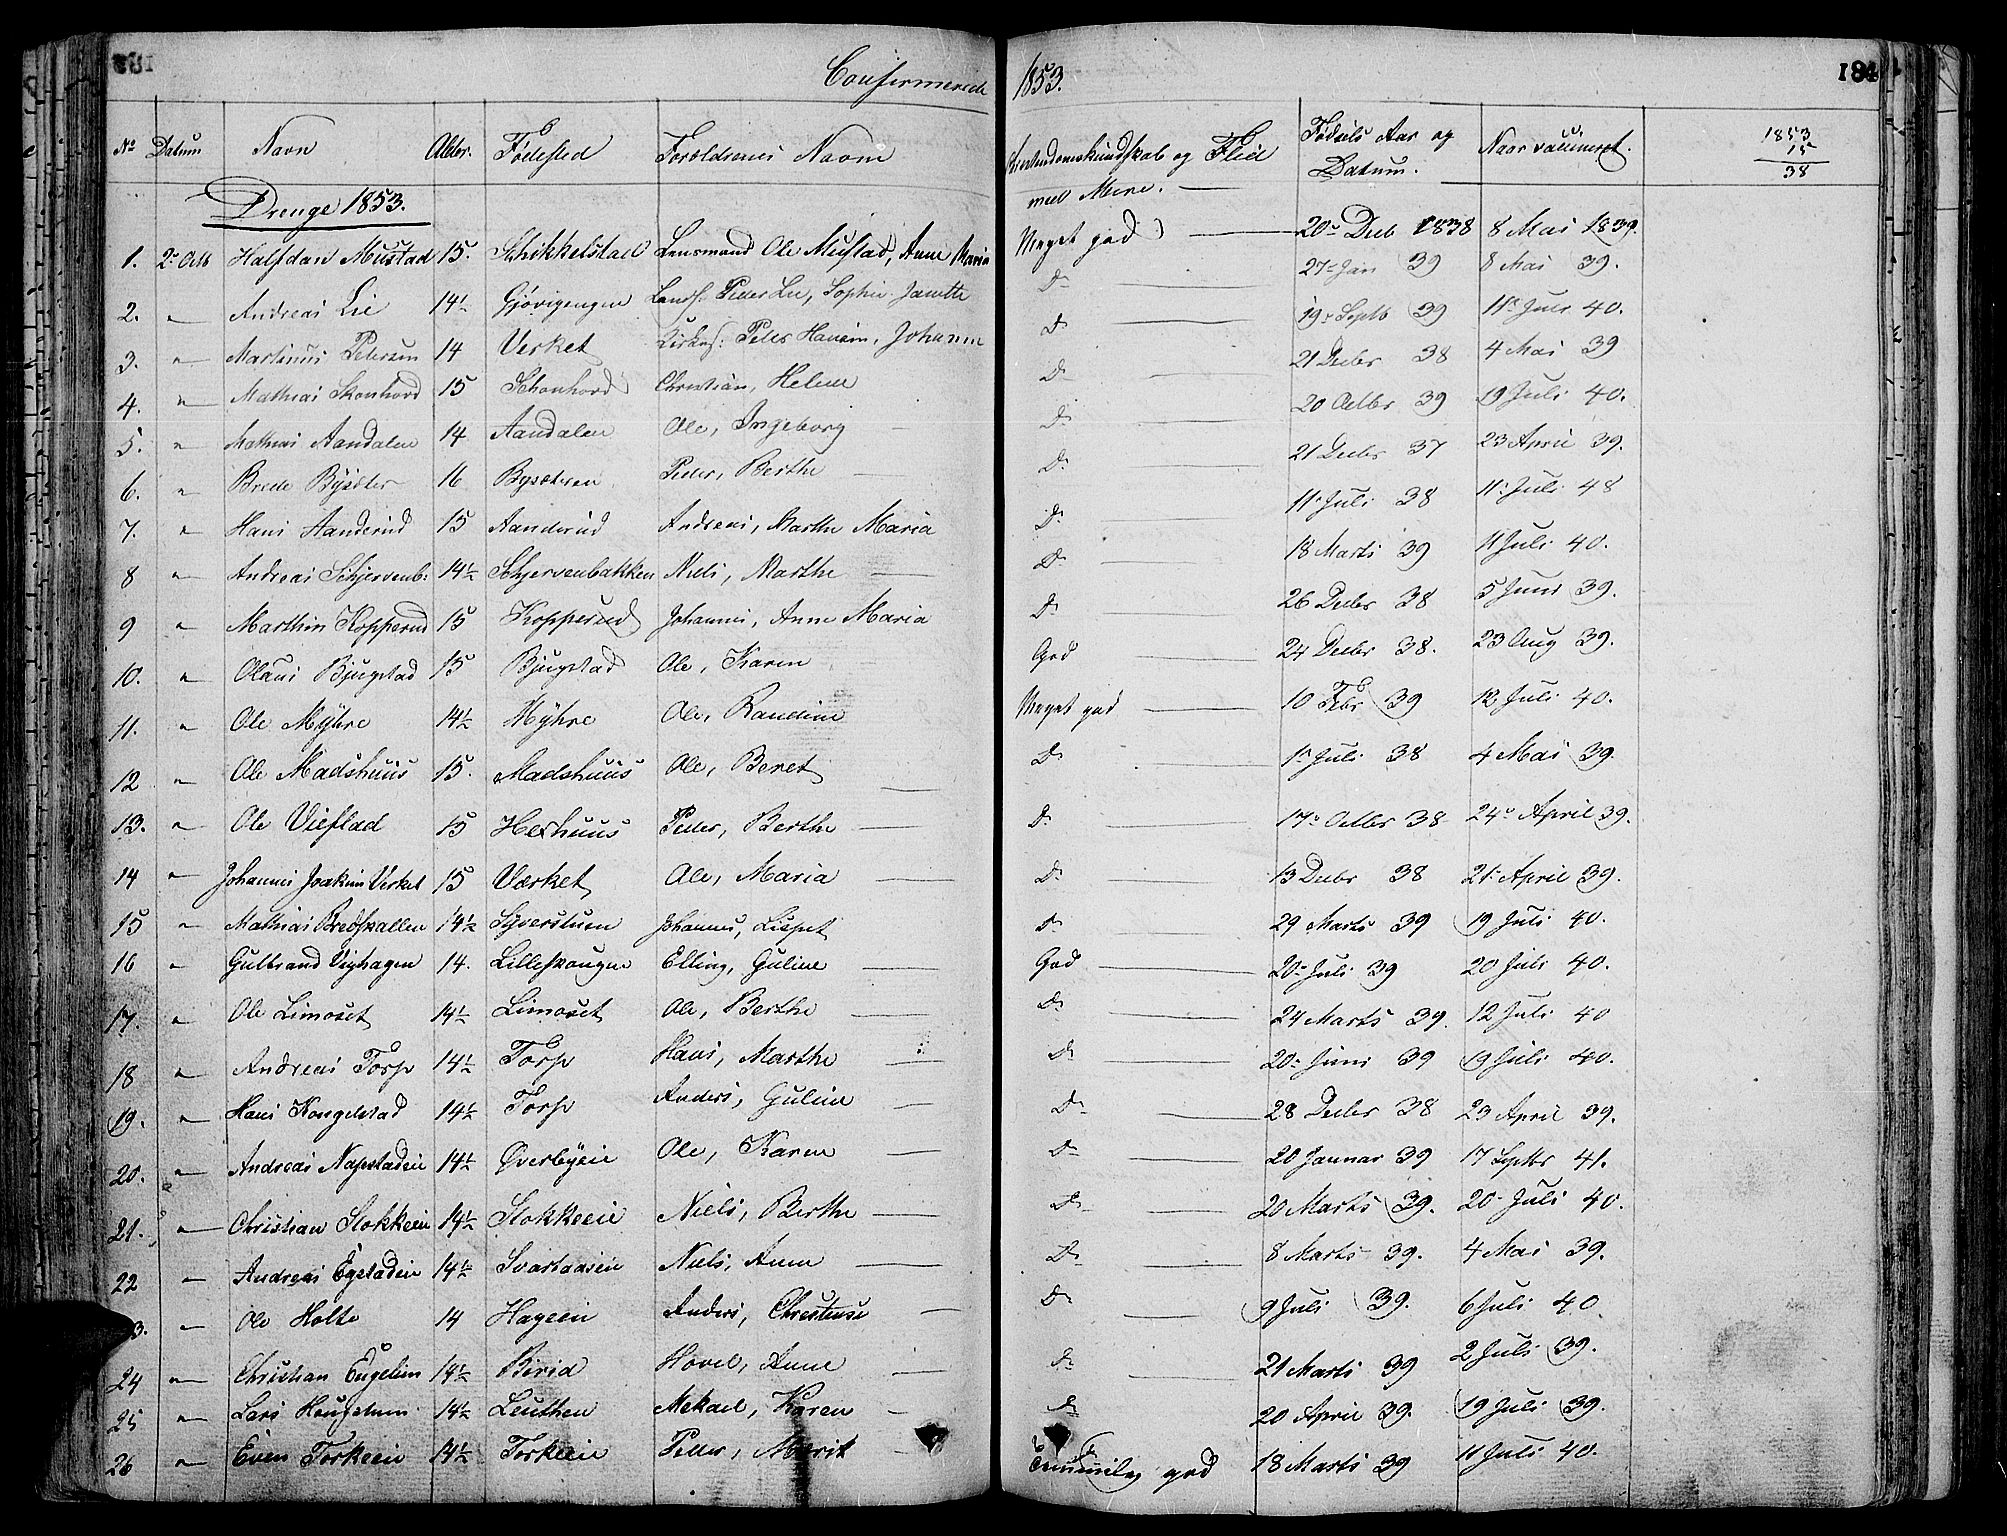 183
Confirmerede
1853.
184
No Datum Navn Alder. Fødested Forældrenes Navne
Christendomskundskab og Flid med Mere. Fødsels Aar og Datum. Naar vaccineret.
1853
15
38
Drenge 1853.
1. 2. Octb Halfdan Mustad 15. Schikkelstad Lensmand Ole Mustad, Anne Maria Meget god 20. Decb 1838 8 Mai 1839.
2. " Andreas Lie 14½ Gjøvigengen Peder Lie, Sophie Janette Do 27. Jan 39 8 Mai 39.
3. " Martinus Petersen 14 Verket Peter Hansen, Johanne Do 19. Septb 39 11. Juli 40.
4. " Mathias Skonhord 15 Schonhord Christian, Helene Do 21 Decbr 38 4 Mai 39
5. " Mathias Aandalen 14 Aandalen Ole, Ingeborg Do 20 Octbr 39 19 Juli 40.
6. " Brede Bysæter 16 Bysæteren Peder, Berthe Do 21 Decbr 37 23 April 39.
7. " Hans Aanderud 15 Aanderud Andreas, Marthe Maria Do 11. Juli 38 11. Juli 48
8 " Andreas Schjervenb: 14½ Schjervenbakken Niels, Marthe Do 18 Marts 39 11 Juli 40.
9 " Marthin Kopperud 15 Kopperud Johannes, Anne Maria Do 26 Decbr 38 5 Juni 39.
10. " Olaus Bjugstad 15 Bjugstad Ole, Karen God 24 Decbr 38. 23 Aug 39.
11. " Ole Myhre 14½ Myhre Ole, Randine Meget god 10 Febr 39 12 Juli 40.
12 " Ole Madshuus 15. Madshuus Ole, Beret Do 1. Juli 38 4 Mai 39.
13. " Ole Viestad 15 Hexhuus Peder, Berthe Do 17. Octbr 38 24. April 39.
14 " Johannes Joakim Verket 15 Værket Ole, Maria Do 13 Decbr 38 21. April 39.
15 " Mathias Bredskallen 14½ Syverstuen Johannes, Lispet Do 29 Marts 39 19 Juli 40.
16 " Gulbrand Vighagen 14. Lilleskougen Elling, Guline God 20. Juli 39 20 Juli 40.
17. " Ole Limoset 14½ Limoset Ole, Berthe Do 24 Marts 39. 12 Juli 40
18 " Andreas Torp 14½ Torp Hans, Marthe Do 20. Juni 39 19 Juli 40.
19. " Hans Kongelstad 14½ Torp Anders, Guline Do 28 Decbr 38 23 April 39.
20. " Andreas Napstadeie 14½ Øverbyeie Ole, Karen Do 20 Januar 39 17 Septbr 41.
21. " Christian Stokkeeie 14½ Stokkeeie Niels, Berthe Do 20 Marts 39. 20. Juli 40.
22 " Andreas Egstadeie 14½ Svartaaseie Niels, Anne Do 8 Marts 39. 4 Mai 39.
3. " Ole Holte 14 Hageeie Anders, Christense Do 9 Juli 39. 6 Juli 40
24 " Christian Engelien 14½ Birid Hovel, Anne Do 21 Marts 39 2 Juli 39.
25 " Lars 14½ Leuthen Mekael, Karen Do 20 April 39. 19 Juli 39.
26 " Even Torkeeie 14½ Torkeeie Peder, Marit Temmelig god 18 Marts 39 11 Juli 40.